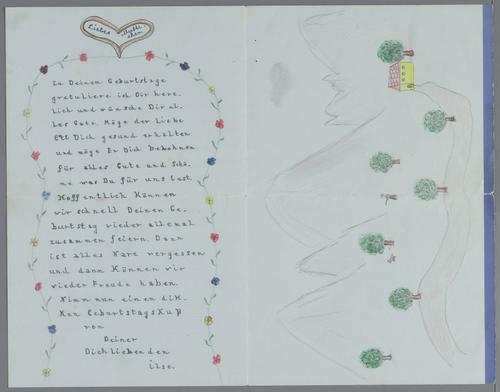 Liebes Mutti
chen
Zu Deinem Geburtstage
gratuliere ich Dir herz,
lich und wünsche Dir al,
les Gute. Möge der Liebe
Gtt Dich gesund erhalten
und möge Er Dich Belohnen
für alles Gute und Schö,
ne was Du für uns tust.
Hoffentlich Können
wir schnell Deinen Ge,
burtstag wieder allemal
zusammen feiern. Dann
ist alles Nare vergessen
und dann Können wir
wieder Freude haben.
Nimm nun einen dik,
Ken GeburtstagsKuß
von
Deiner
Dichliebenden
ilse.